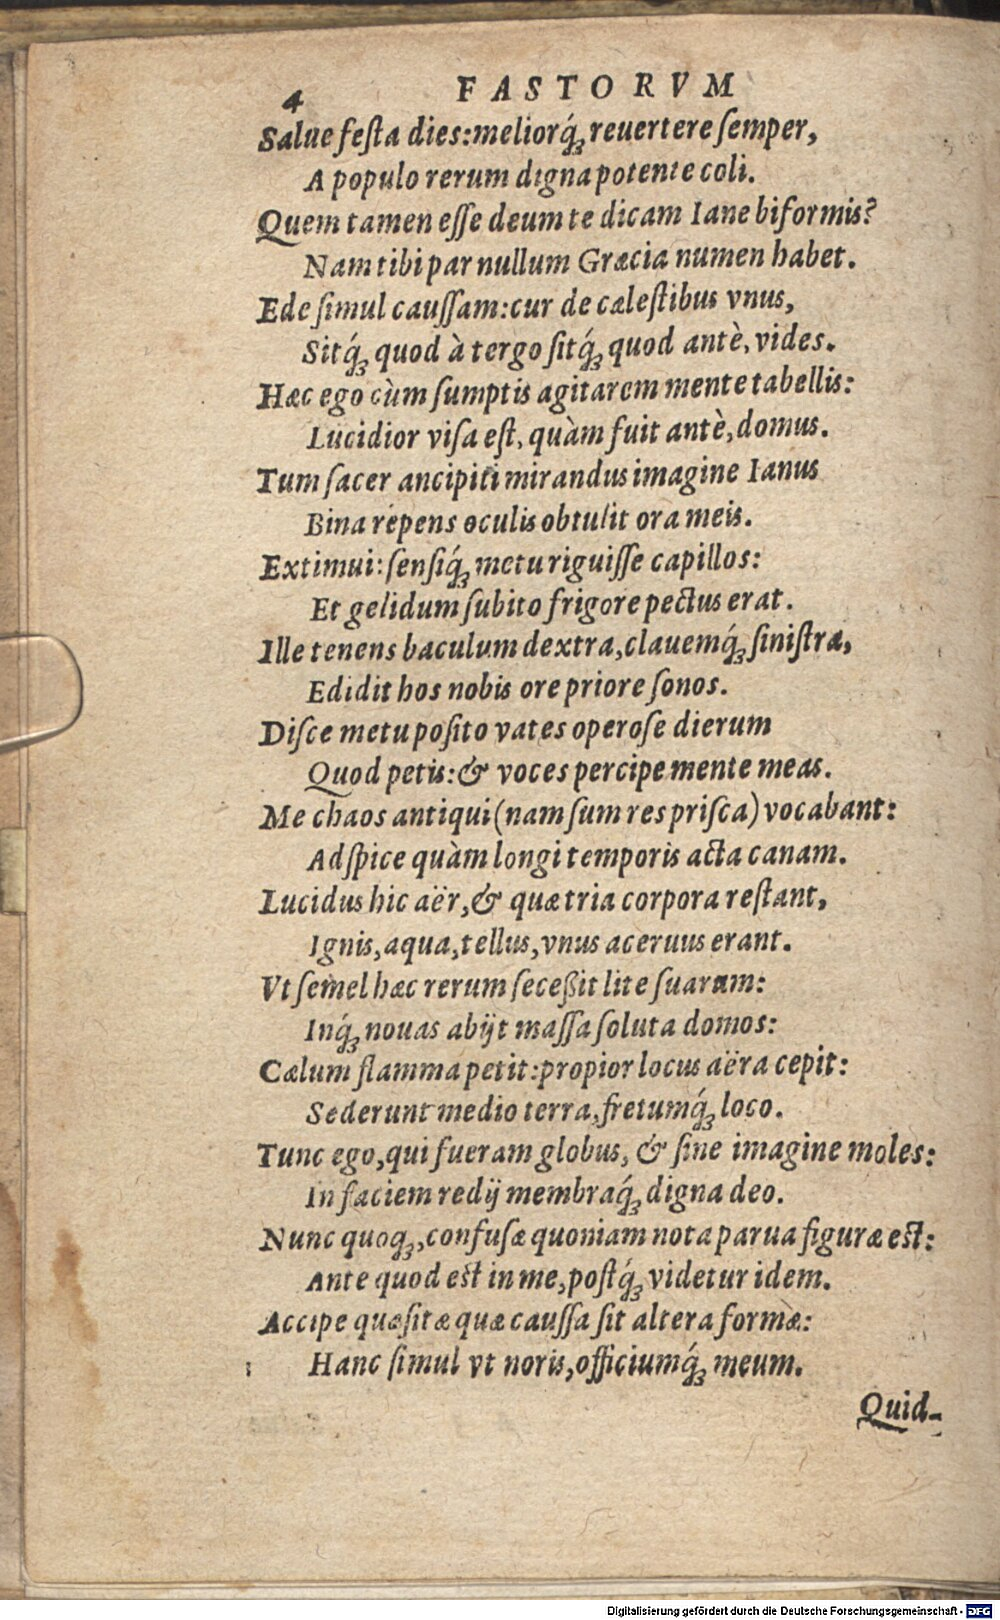 4 FASTORVM
Salue feſta dies: meliorq́ꝫ reuertere ſemper,
A populo rerum digna potente coli.
Quem tamen eſſe deum te dicam Iane biformis?
Nam tibi par nullum Græcia numen habet.
Ede ſimul cauſſam: cur de cæleſtibus vnus,
Sitq́ꝫ quod à tergo ſitq́ꝫ quod antè, vides.
Hæc ego cùm ſumptis agitarem mente tabellis:
Lucidior viſa eſt, quàm fuit antè, domus.
Tum ſacer ancipiti mirandus imagine Ianus
Bina repens oculis obtulit ora meis.
Extimui: ſenſiq́ꝫ metu riguiſſe capillos:
Et gelidum ſubito frigore pectus erat.
Ille tenens baculum dextra, clauemq́ꝫ ſiniſtra,
Edidit hos nobis ore priore ſonos.
Diſce metu poſito vates operoſe dierum
Quod petis: & voces percipe mente meas.
Me chaos antiqui (nam ſum res priſca) vocabant:
Adſpice quàm longi temporis acta canam.
Lucidus hic aër, & quæ tria corpora reſtant,
Ignis, aqua, tellus, vnus aceruus erant.
Vt ſemel hæc rerum ſeceßit lite ſuarum:
Inq́ꝫ nouas abijt maſſa ſoluta domos:
Cælum flamma petit: propior locus aëra cepit:
Sederunt medio terra, fretumq́ꝫ loco.
Tunc ego, qui fueram globus, & ſine imagine moles:
In faciem redij membraq́ꝫ digna deo.
Nunc quoqꝫ, confuſæ quoniam nota parua figuræ eſt:
Ante quod eſt in me, poſtq́ꝫ videtur idem.
Accipe quæſitæ quæ cauſſa ſit altera formæ:
Hanc ſimul vt noris, officiumq́ꝫ meum.
Quid-
Digitalisierung gefördert durch die Deutsche Forschungsgemeinschaft - DFG